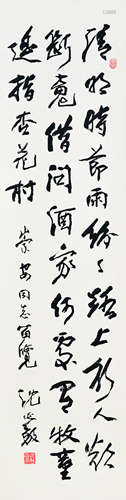 清明時節雨紛々路上行人欲
斷魂借問酒家何處有牧童
遙指杏花村
同志覽
沈延毅